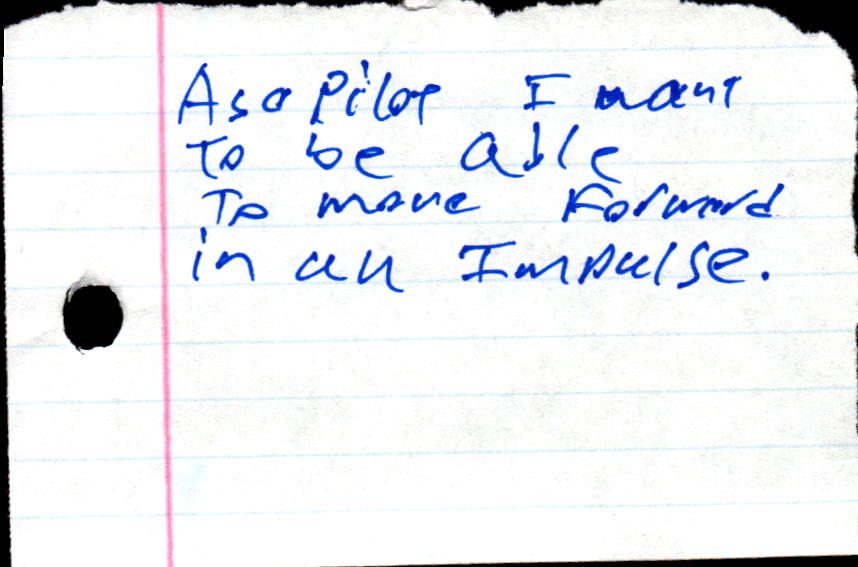 As a Pilot I want
To be able
To move Forward
in an Impulse.